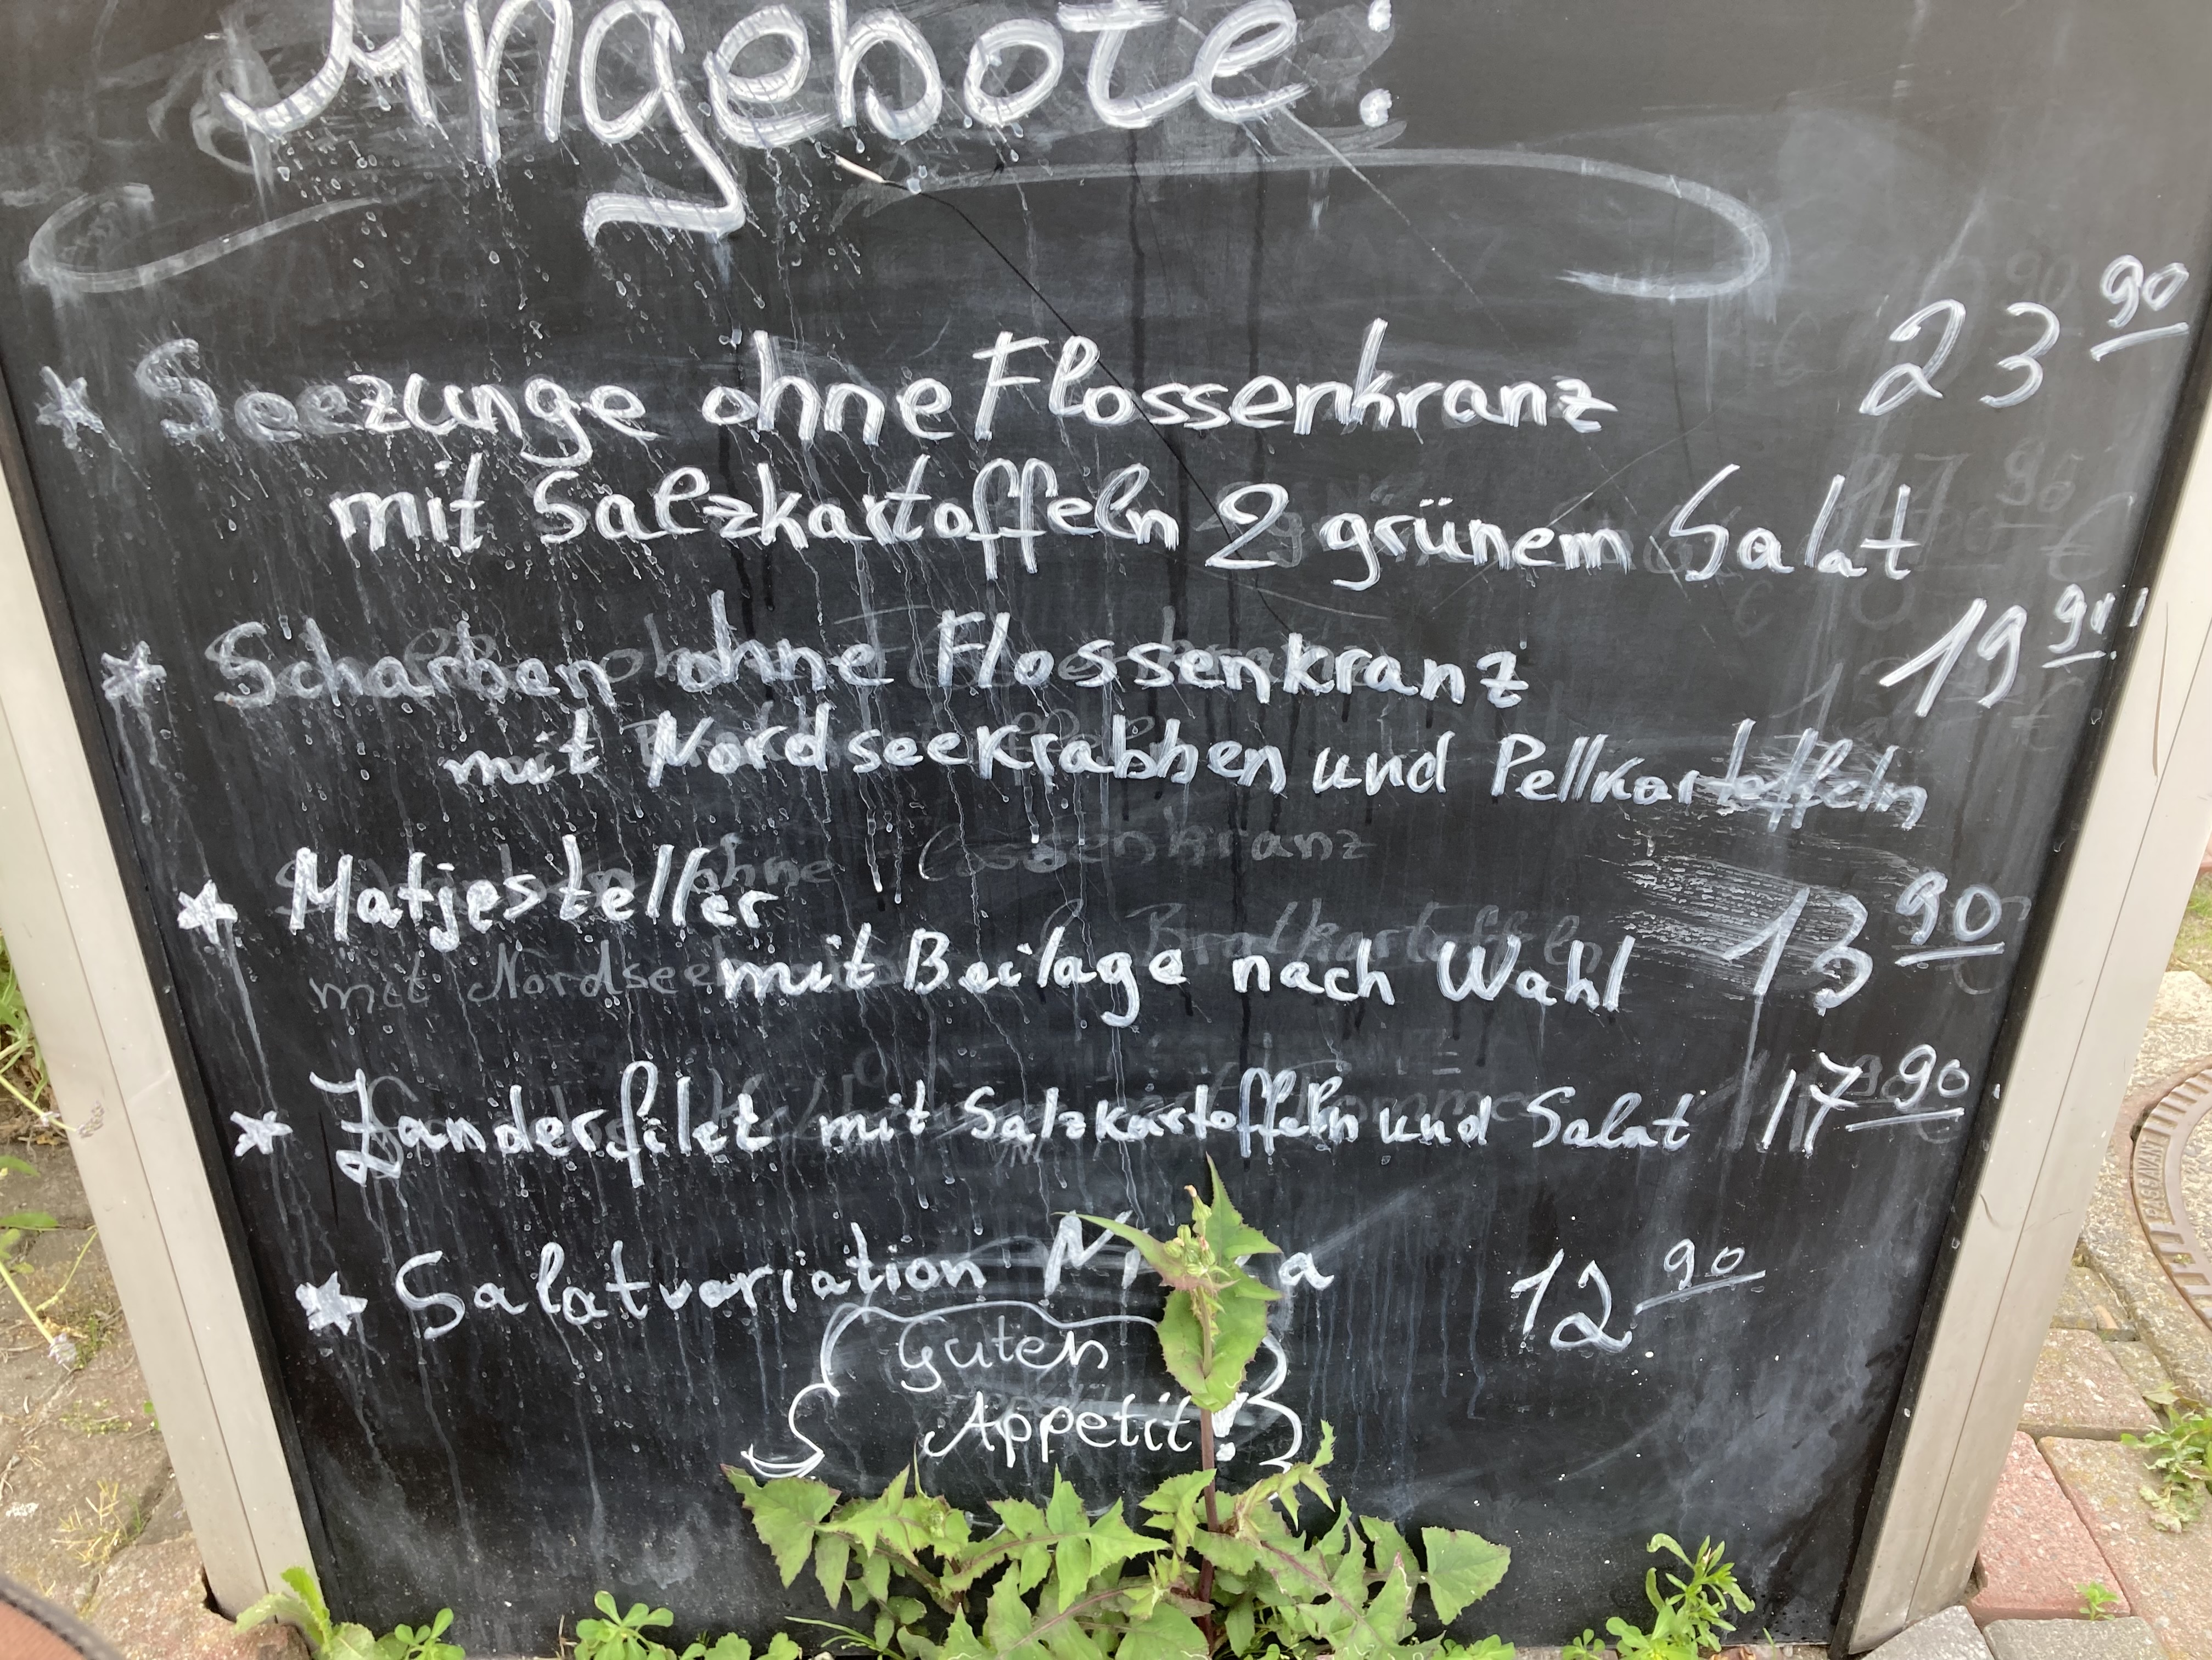 Angebote:
* Seezunge ohne Flossenkranz 23 90
mit Salzkartoffeln & grünem Salat
* Scharben ohne Flossenkranz 19 90
mit Nordseekrabben und Pellkartoffeln
* Matjesteller
mit Beilage nach Wahl 13 90
* Zanderfilet mit Salzkartoffeln und Salat 17 90
* Salatvariation 12 90
Guten
Appetit!
PASSAVANT